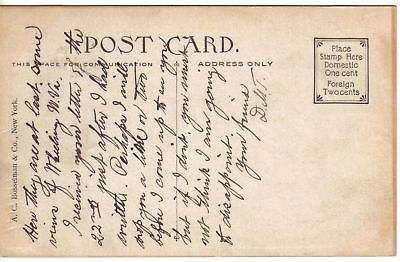 POST CARD.
THIS PLACE FOR COMMUNICATION
ADDRESS ONLY
Place
Stamp Here
Domestic
One cent
Foreign
Two cents
A. C. Bosselman & Co., New York.
Here they are at last, some
views of Wheeling W.Va.
I received your letter of the
22nd just after I had
written. Perhaps I will
drop you a line or two
before I come up to see you
but if I don't, you must
not think I am going
to disappoint.
Your friend